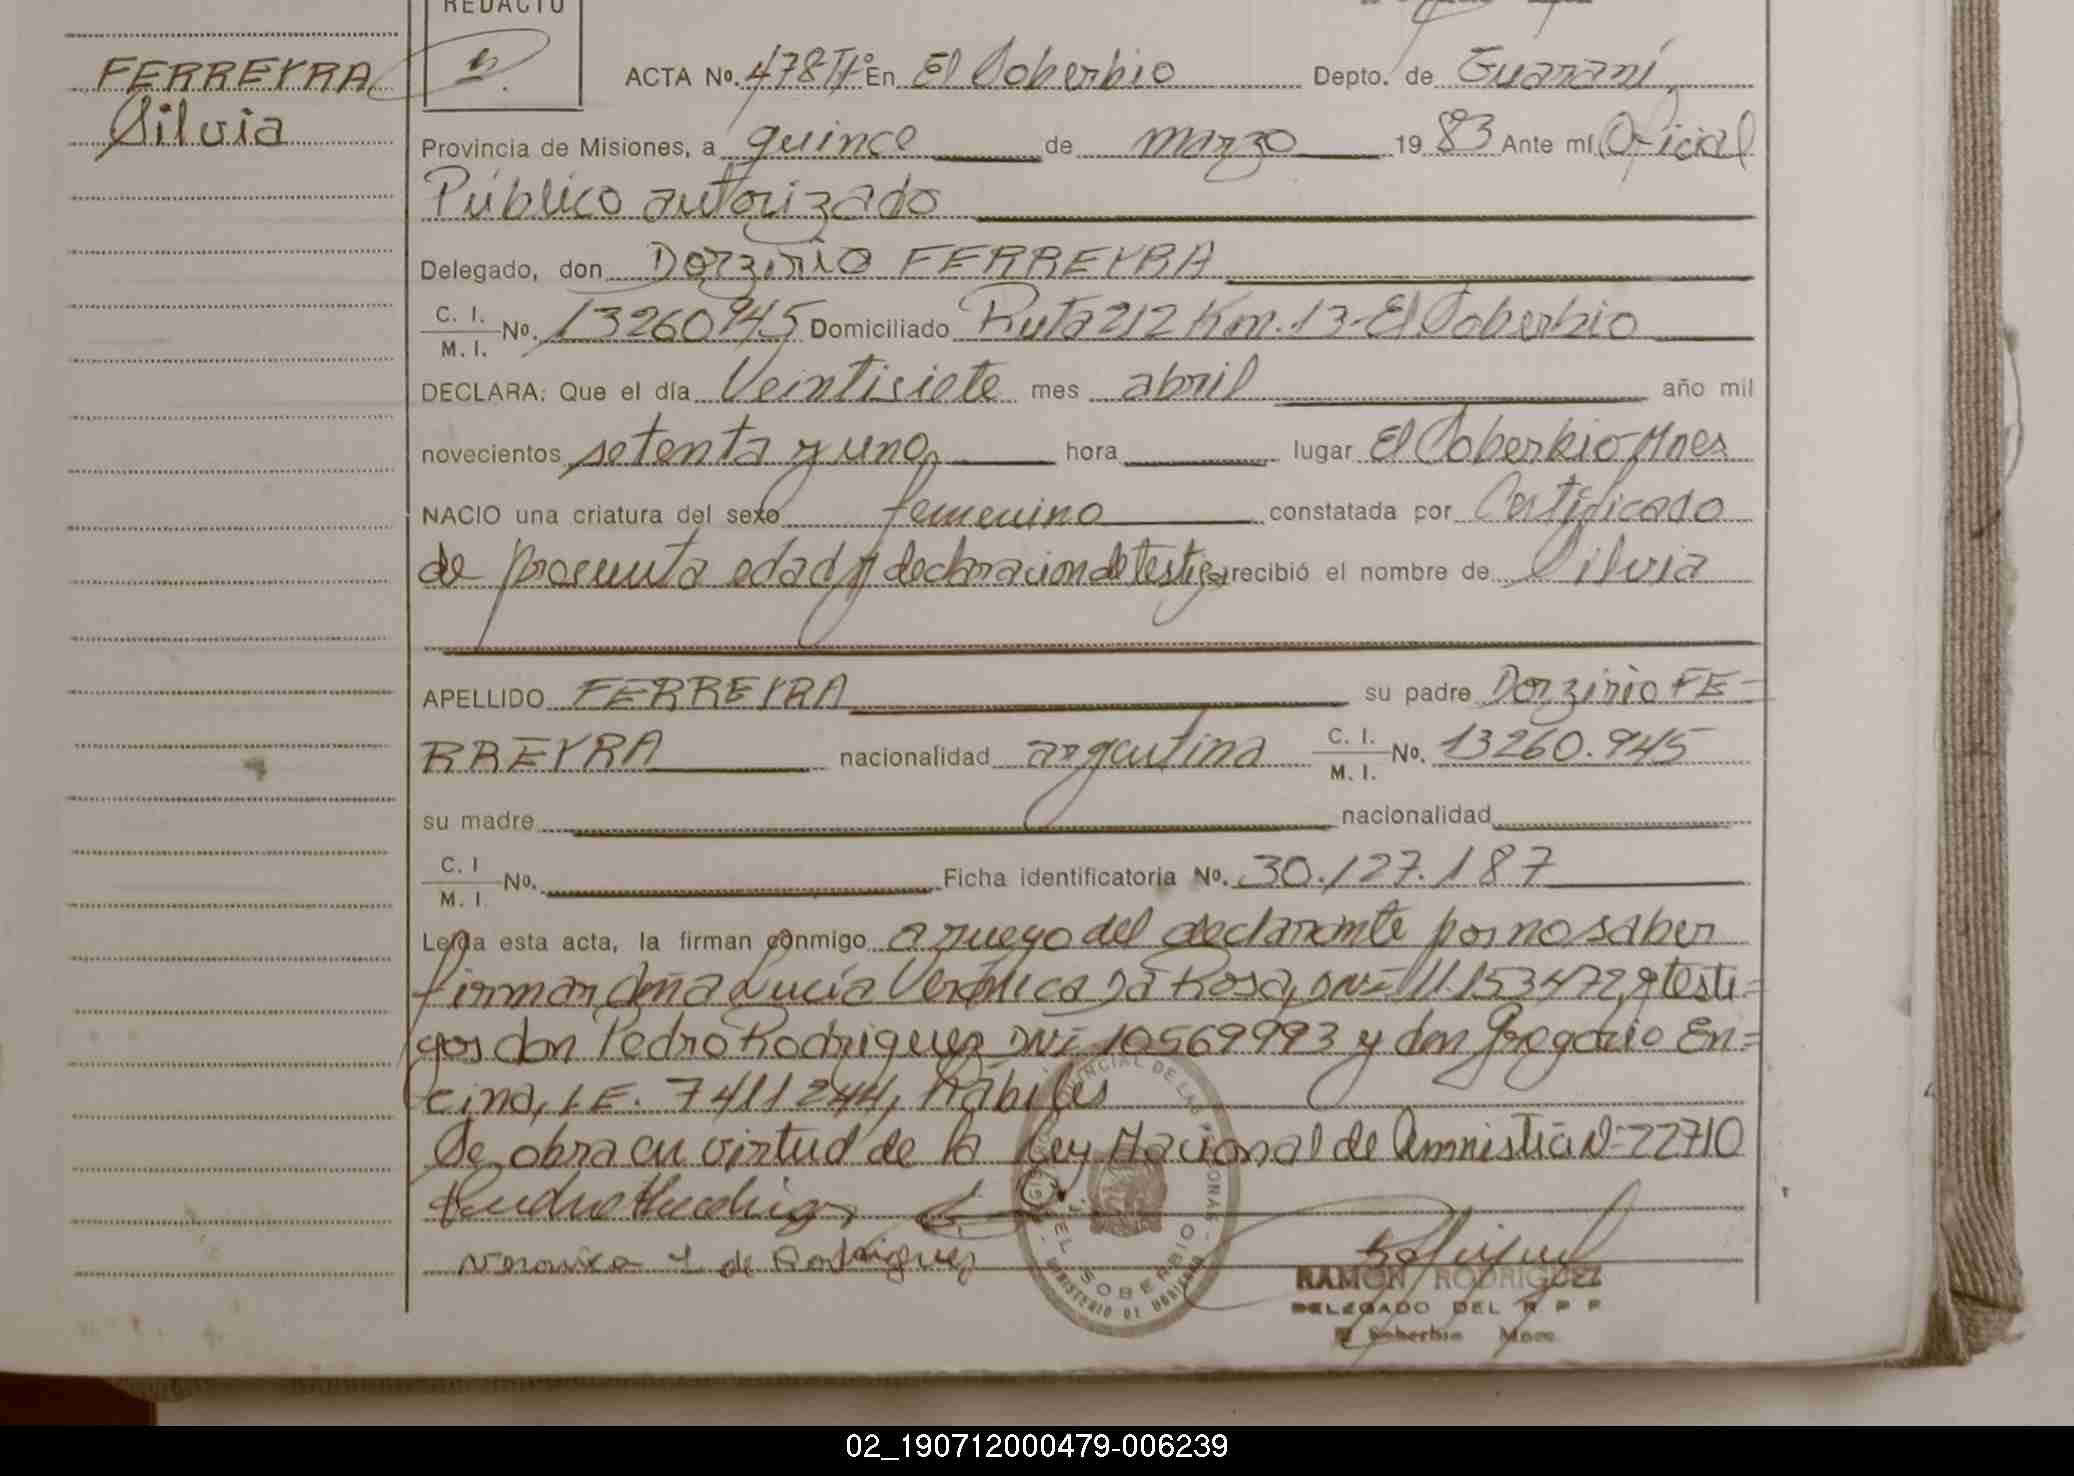 REDACTO
FERREYRA
Silvia
ACTA No. 478 Tº En El Soberbio Depto. de Guaraní
Provincia de Misiones, a quince de marzo 1983 Ante mí Oficial
Público autorizado
Delegado, don Dorzirio FERREYRA
C. I. / M. I. No. 13260945 Domiciliado Ruta 212 Km. 13 - El Soberbio
DECLARA: Que el día Veintisiete mes abril año mil
novecientos setenta y uno, hora lugar El Soberbio Mnes
NACIO una criatura del sexo femenino constatada por Certificado
de presunta edad y declaracion de testigos recibió el nombre de Silvia
APELLIDO FERREYRA su padre Dorzirio FE-
RREYRA nacionalidad argentina C. I. / M. I. No. 13260.945
su madre nacionalidad
C. I / M. I No. Ficha identificatoria No. 30.127.187
Leída esta acta, la firman conmigo a ruego del declarante por no saber
firmar doña Lucía Verónica Da Rosa, DNI 11.153472, y testi=
gos don Pedro Rodriguez DNI 10569993 y don Gregorio En=
cina, L.E. 7411244, hábiles
Se obra en virtud de la Ley Nacional de Amnistia Nº 22710
Veronica L de Rodriguez
EL SOBERBIO
MINISTERIO DE GOBIERNO
RAMON RODRIGUEZ
DELEGADO DEL R P P
El Soberbio Mnes.
02_190712000479-006239